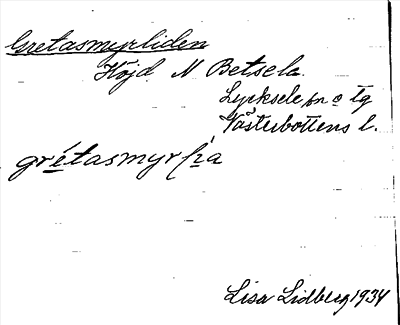 Gretasmyrliden
Höjd N Betsela.
Lycksele sn o tg
Västerbottens l.
grétasmyrlia
Lisa Lidberg 1934